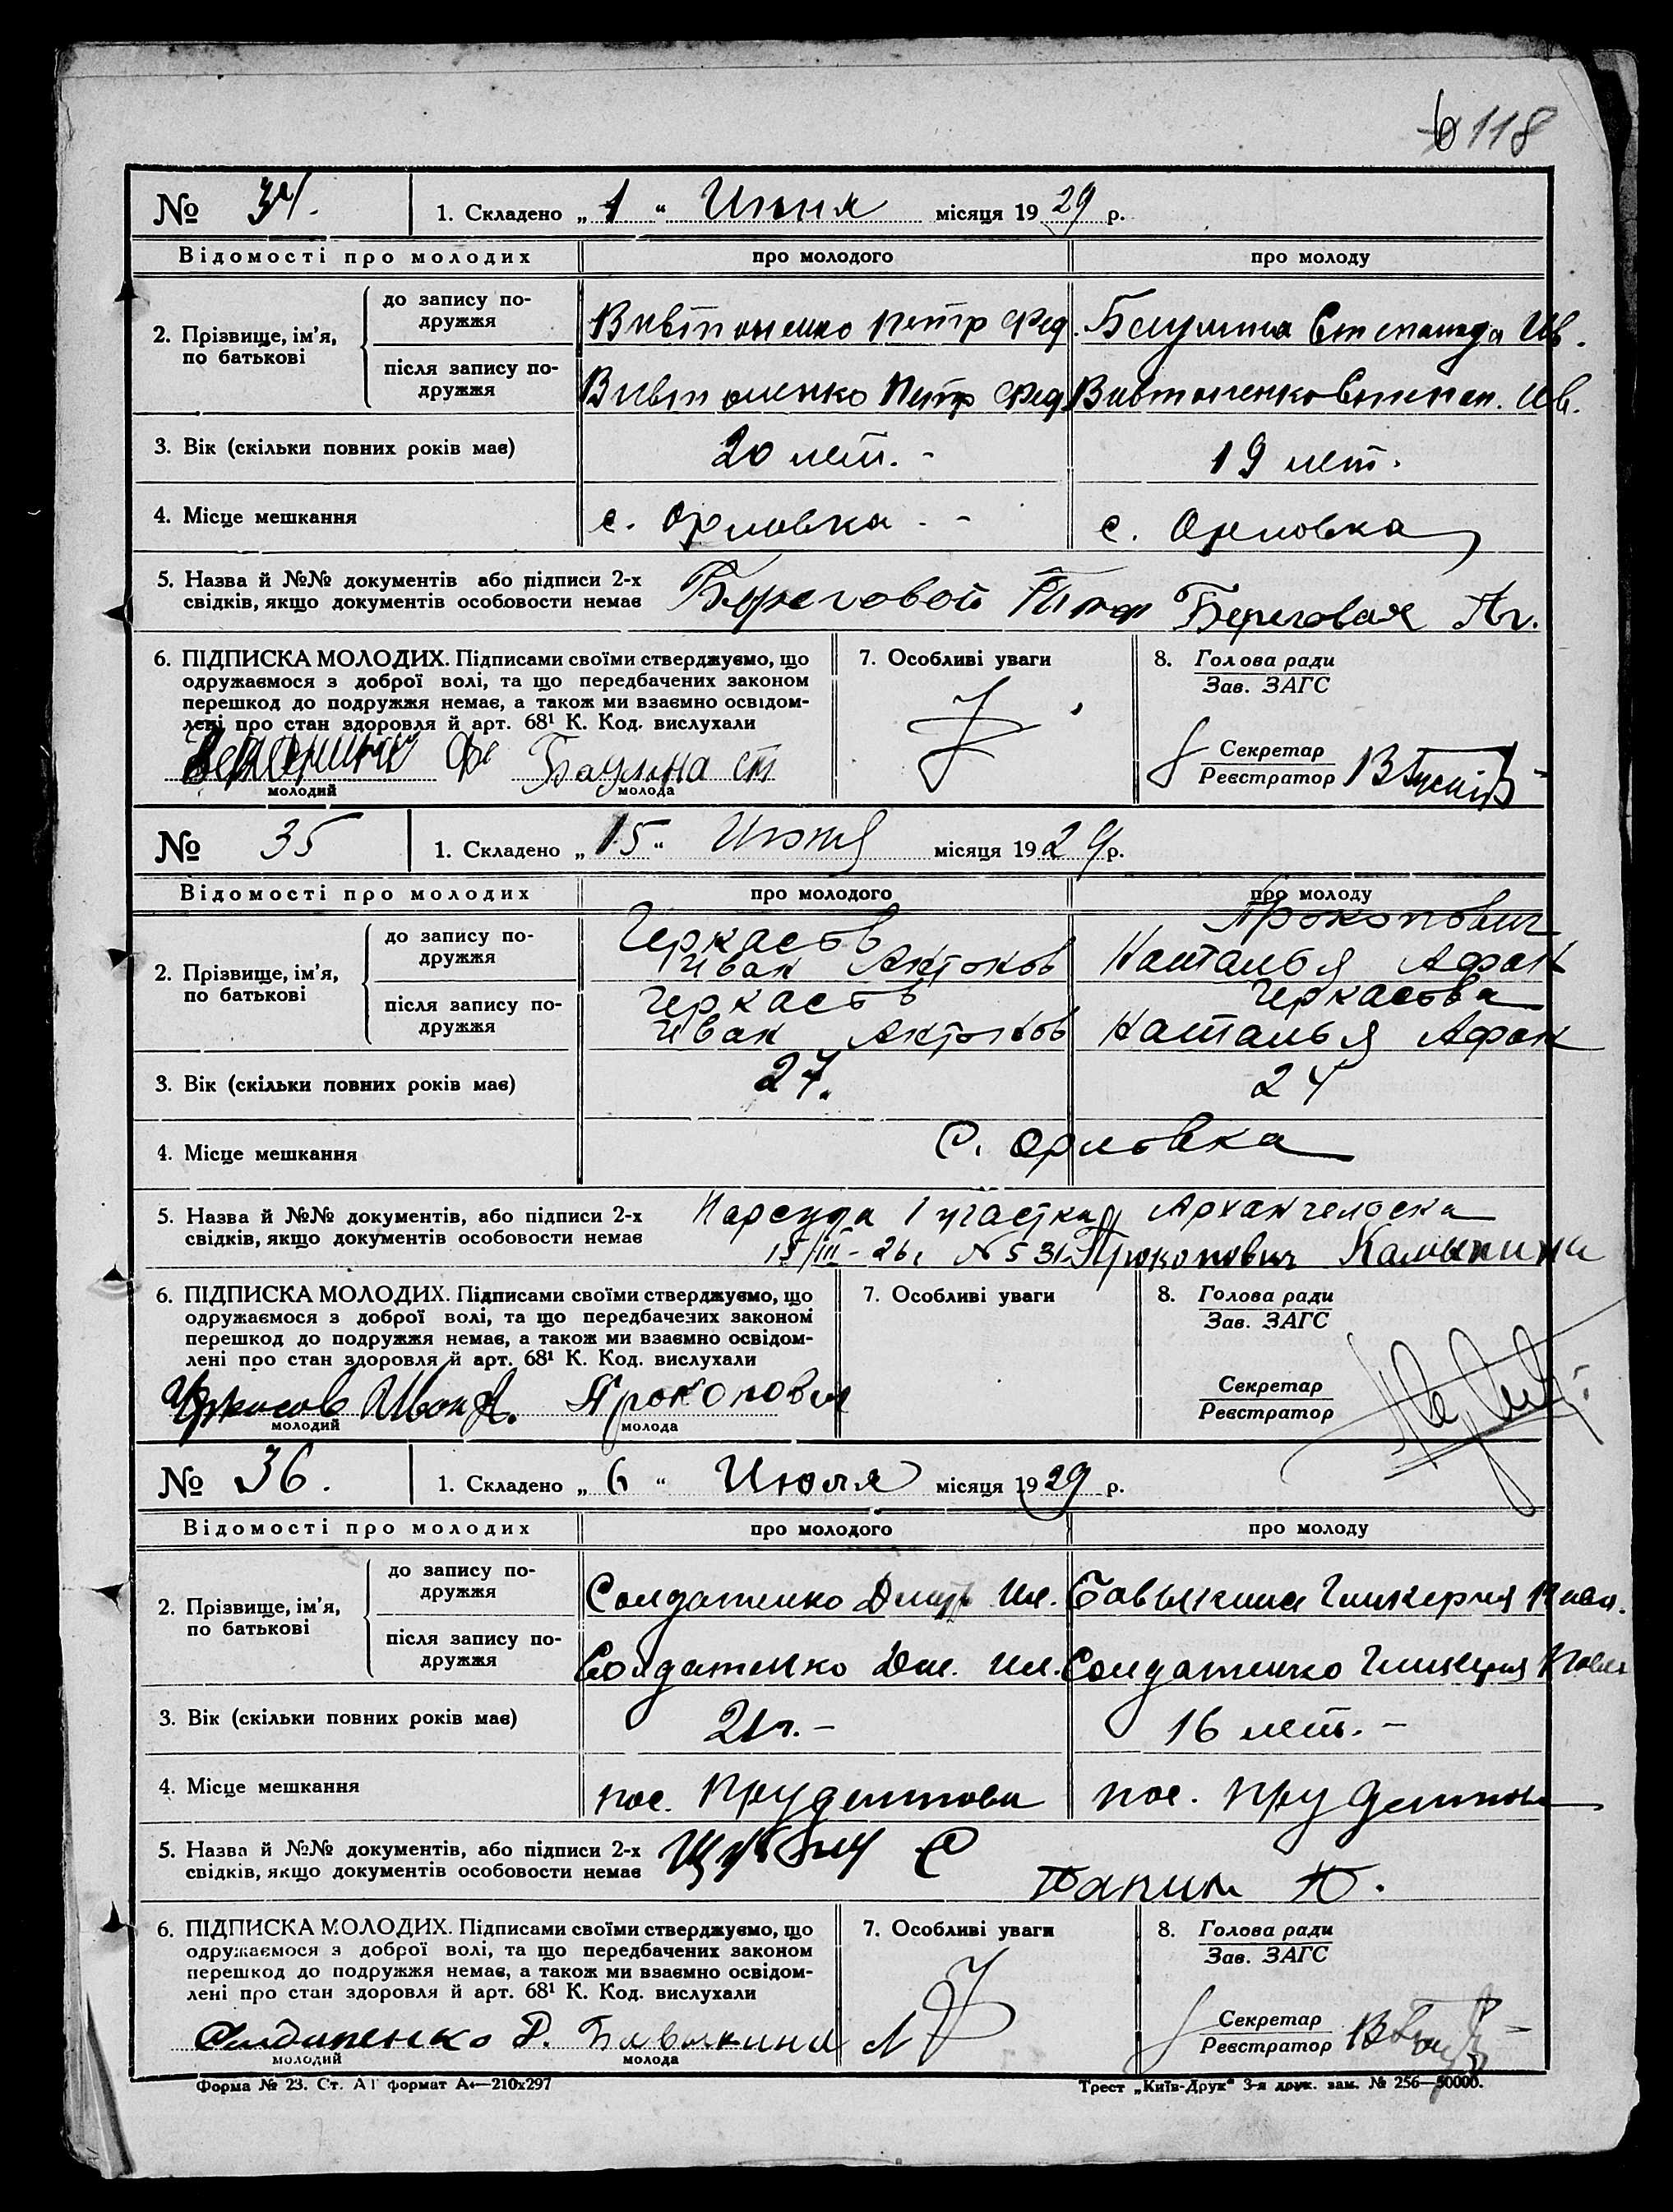 118
№ 34. 1. Складено „ 1 “ Июня місяця 19 29 р.
Відомості про молодих про молодого про молоду
2. Прізвище, ім'я, по батькові
до запису по-
дружжя
Вивтоненко Петр Фед. Баулина Степанида Ив.
після запису по-
дружжя
Вивтоненко Петр Фед. Вивтоненко Степан. Ив.
3. Вік (скільки повних років має) 20 лет. - 19 лет.
4. Місце мешкання с. Орловка. - с. Орловка
5. Назва й №№ документів або підписи 2-х
свідків, якщо документів особовости немає
Береговой Петр Береговая
6. ПІДПИСКА МОЛОДИХ. Підписами своїми стверджуємо, що
одружаємося з доброї волі, та що передбачених законом
перешкод до подружжя немає, а також ми взаємно освідом-
лені про стан здоровля й арт. 68¹ К. Код. вислухали
Баулина ст
молодий молода
7. Особливі уваги
8. Голова ради
Зав. ЗАГС
Секретар
Реєстратор
№ 35 1. Складено „ 15 “ Июня місяця 19 29 р.
Відомості про молодих про молодого про молоду
2. Прізвище, ім'я, по батькові
до запису по-
дружжя
Черкасов Прокопович
Иван Антонов Наталья Афан
після запису по-
дружжя
Черкасов Черкасова
Иван Антонов Наталья Афан
3. Вік (скільки повних років має) 27. 24
4. Місце мешкання С. Орловка
5. Назва й №№ документів, або підписи 2-х
свідків, якщо документів особовости немає
Нарсуда 1 участка Архангельска
15/III-26 г. № 531 Прокопович Калынина
6. ПІДПИСКА МОЛОДИХ. Підписами своїми стверджуємо, що
одружаємося з доброї волі, та що передбачених законом
перешкод до подружжя немає, а також ми взаємно освідом-
лені про стан здоровля й арт. 68¹ К. Код. вислухали
Черкасов Иван А. Прокопович
молодий молода
7. Особливі уваги
8. Голова ради
Зав. ЗАГС
Секретар
Реєстратор
№ 36. 1. Складено „ 6 “ Июля місяця 19 29 р.
Відомості про молодих про молодого про молоду
2. Прізвище, ім'я, по батькові
до запису по-
дружжя
Солдатенко Дмитр Ил. Бавыкина Гликерия Павл.
після запису по-
дружжя
Солдатенко Дм. Ил. Солдатенко Гликерия Павл
3. Вік (скільки повних років має) 21 г. - 16 лет. -
4. Місце мешкання пос. Прудентова пос. Прудентова
5. Назва й №№ документів, або підписи 2-х
свідків, якщо документів особовости немає
Папин Ю.
6. ПІДПИСКА МОЛОДИХ. Підписами своїми стверджуємо, що
одружаємося з доброї волі, та що передбачених законом
перешкод до подружжя немає, а також ми взаємно освідом-
лені про стан здоровля й арт. 68¹ К. Код. вислухали
Солдатенко Д. Бавыкина
молодий молода
7. Особливі уваги
8. Голова ради
Зав. ЗАГС
Секретар
Реєстратор
Форма № 23. Ст. АГ формат А4—210x297 Трест „Київ-Друк“ 3-я друк. зам. № 256—50000.